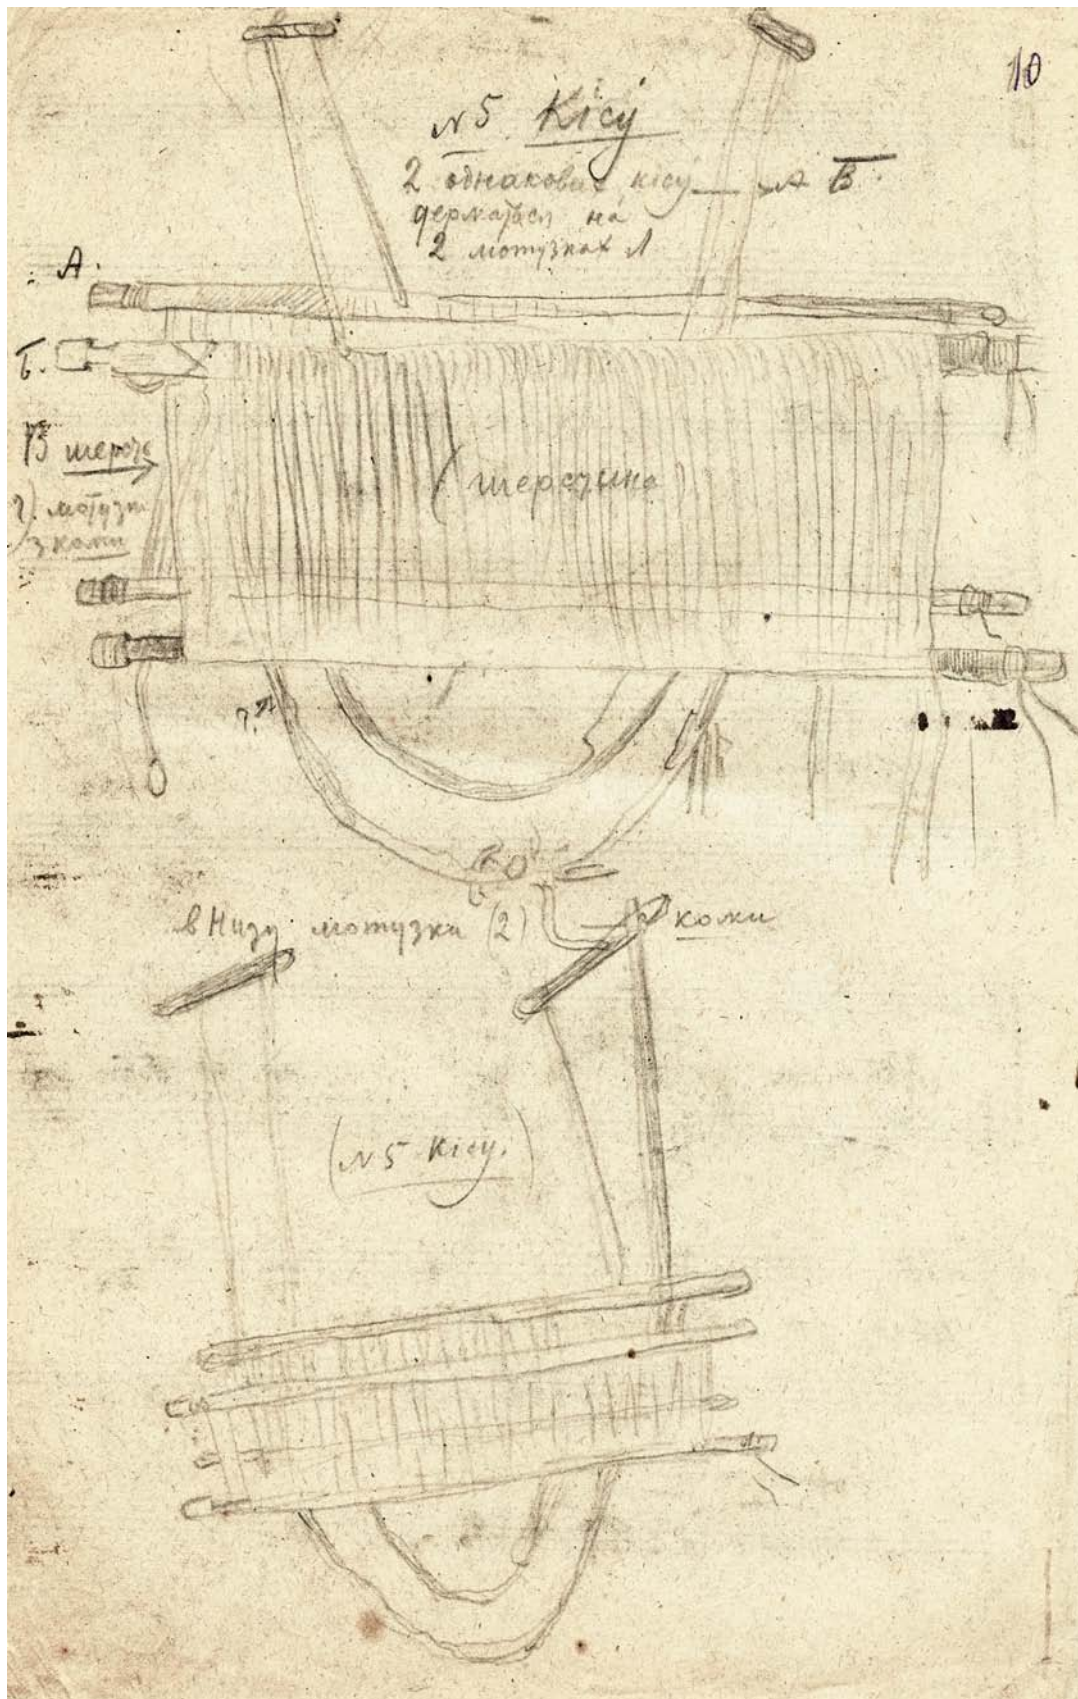 10
№5 Кісу
2 однакових кісу → А Б.
держаться на
2 мотузках
А.
Б.
В шерсть
мотузки
з кожи
(шерстина
в Низу мотузка (2) кожи
(№5 Кісу.)